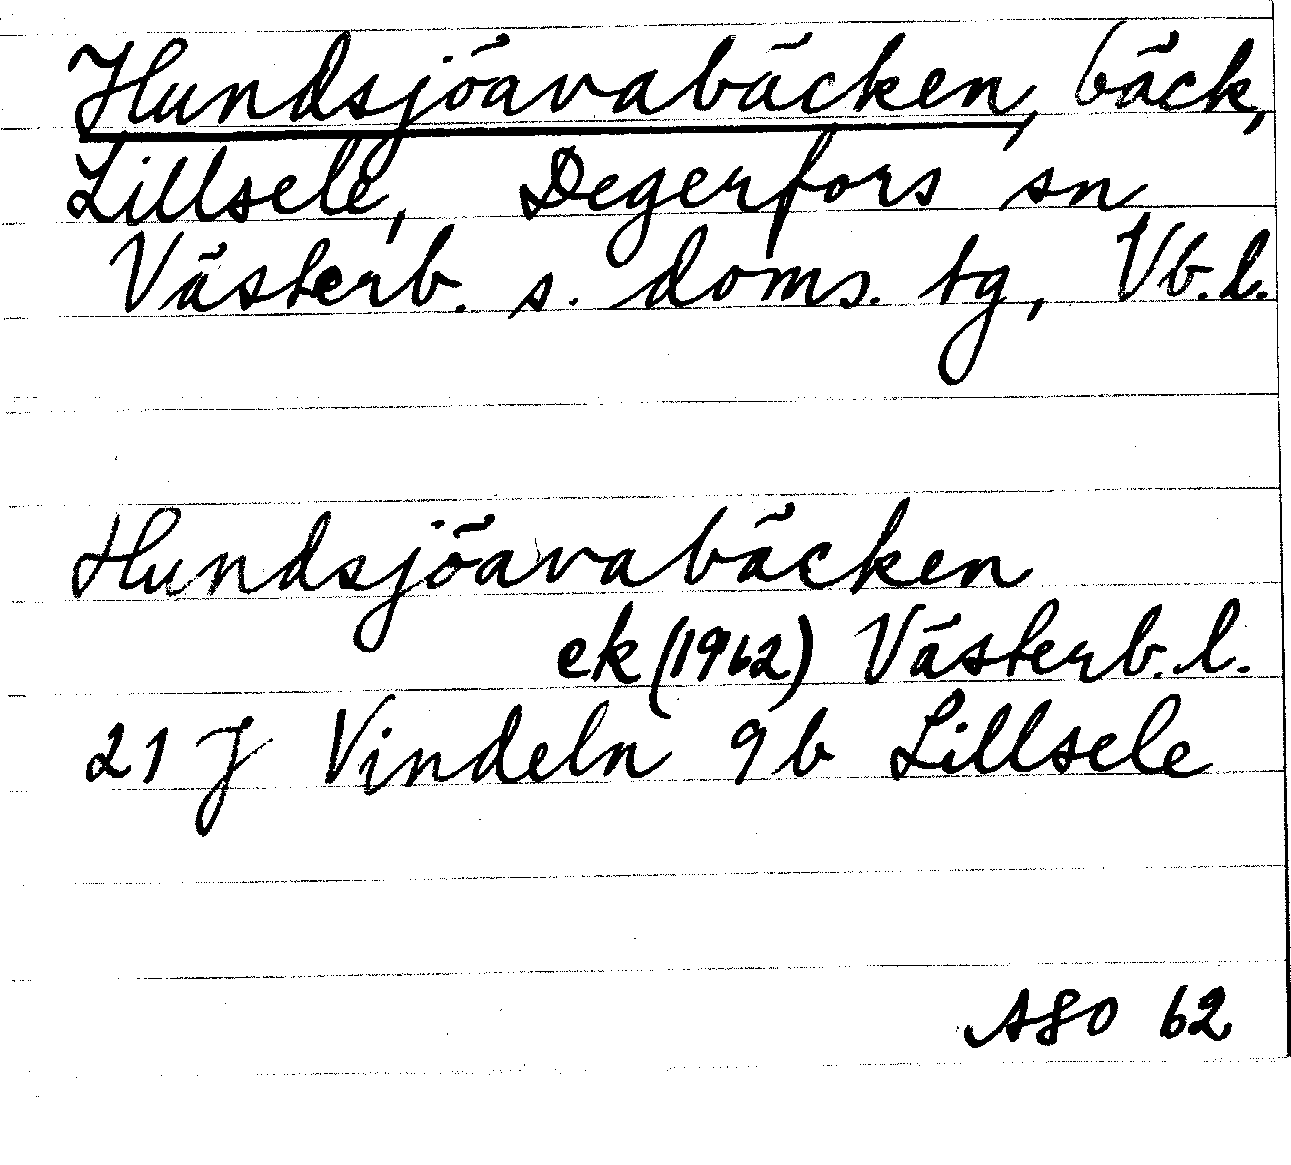 Hundsjöavabäcken, bäck,
Lillsele, Degerfors sn
Västerb. s. doms. tg, Vb. l.
Hundsjöavabäcken
ek (1962) Västerb. l.
21 J Vindeln 9b Lillsele
ASO 62